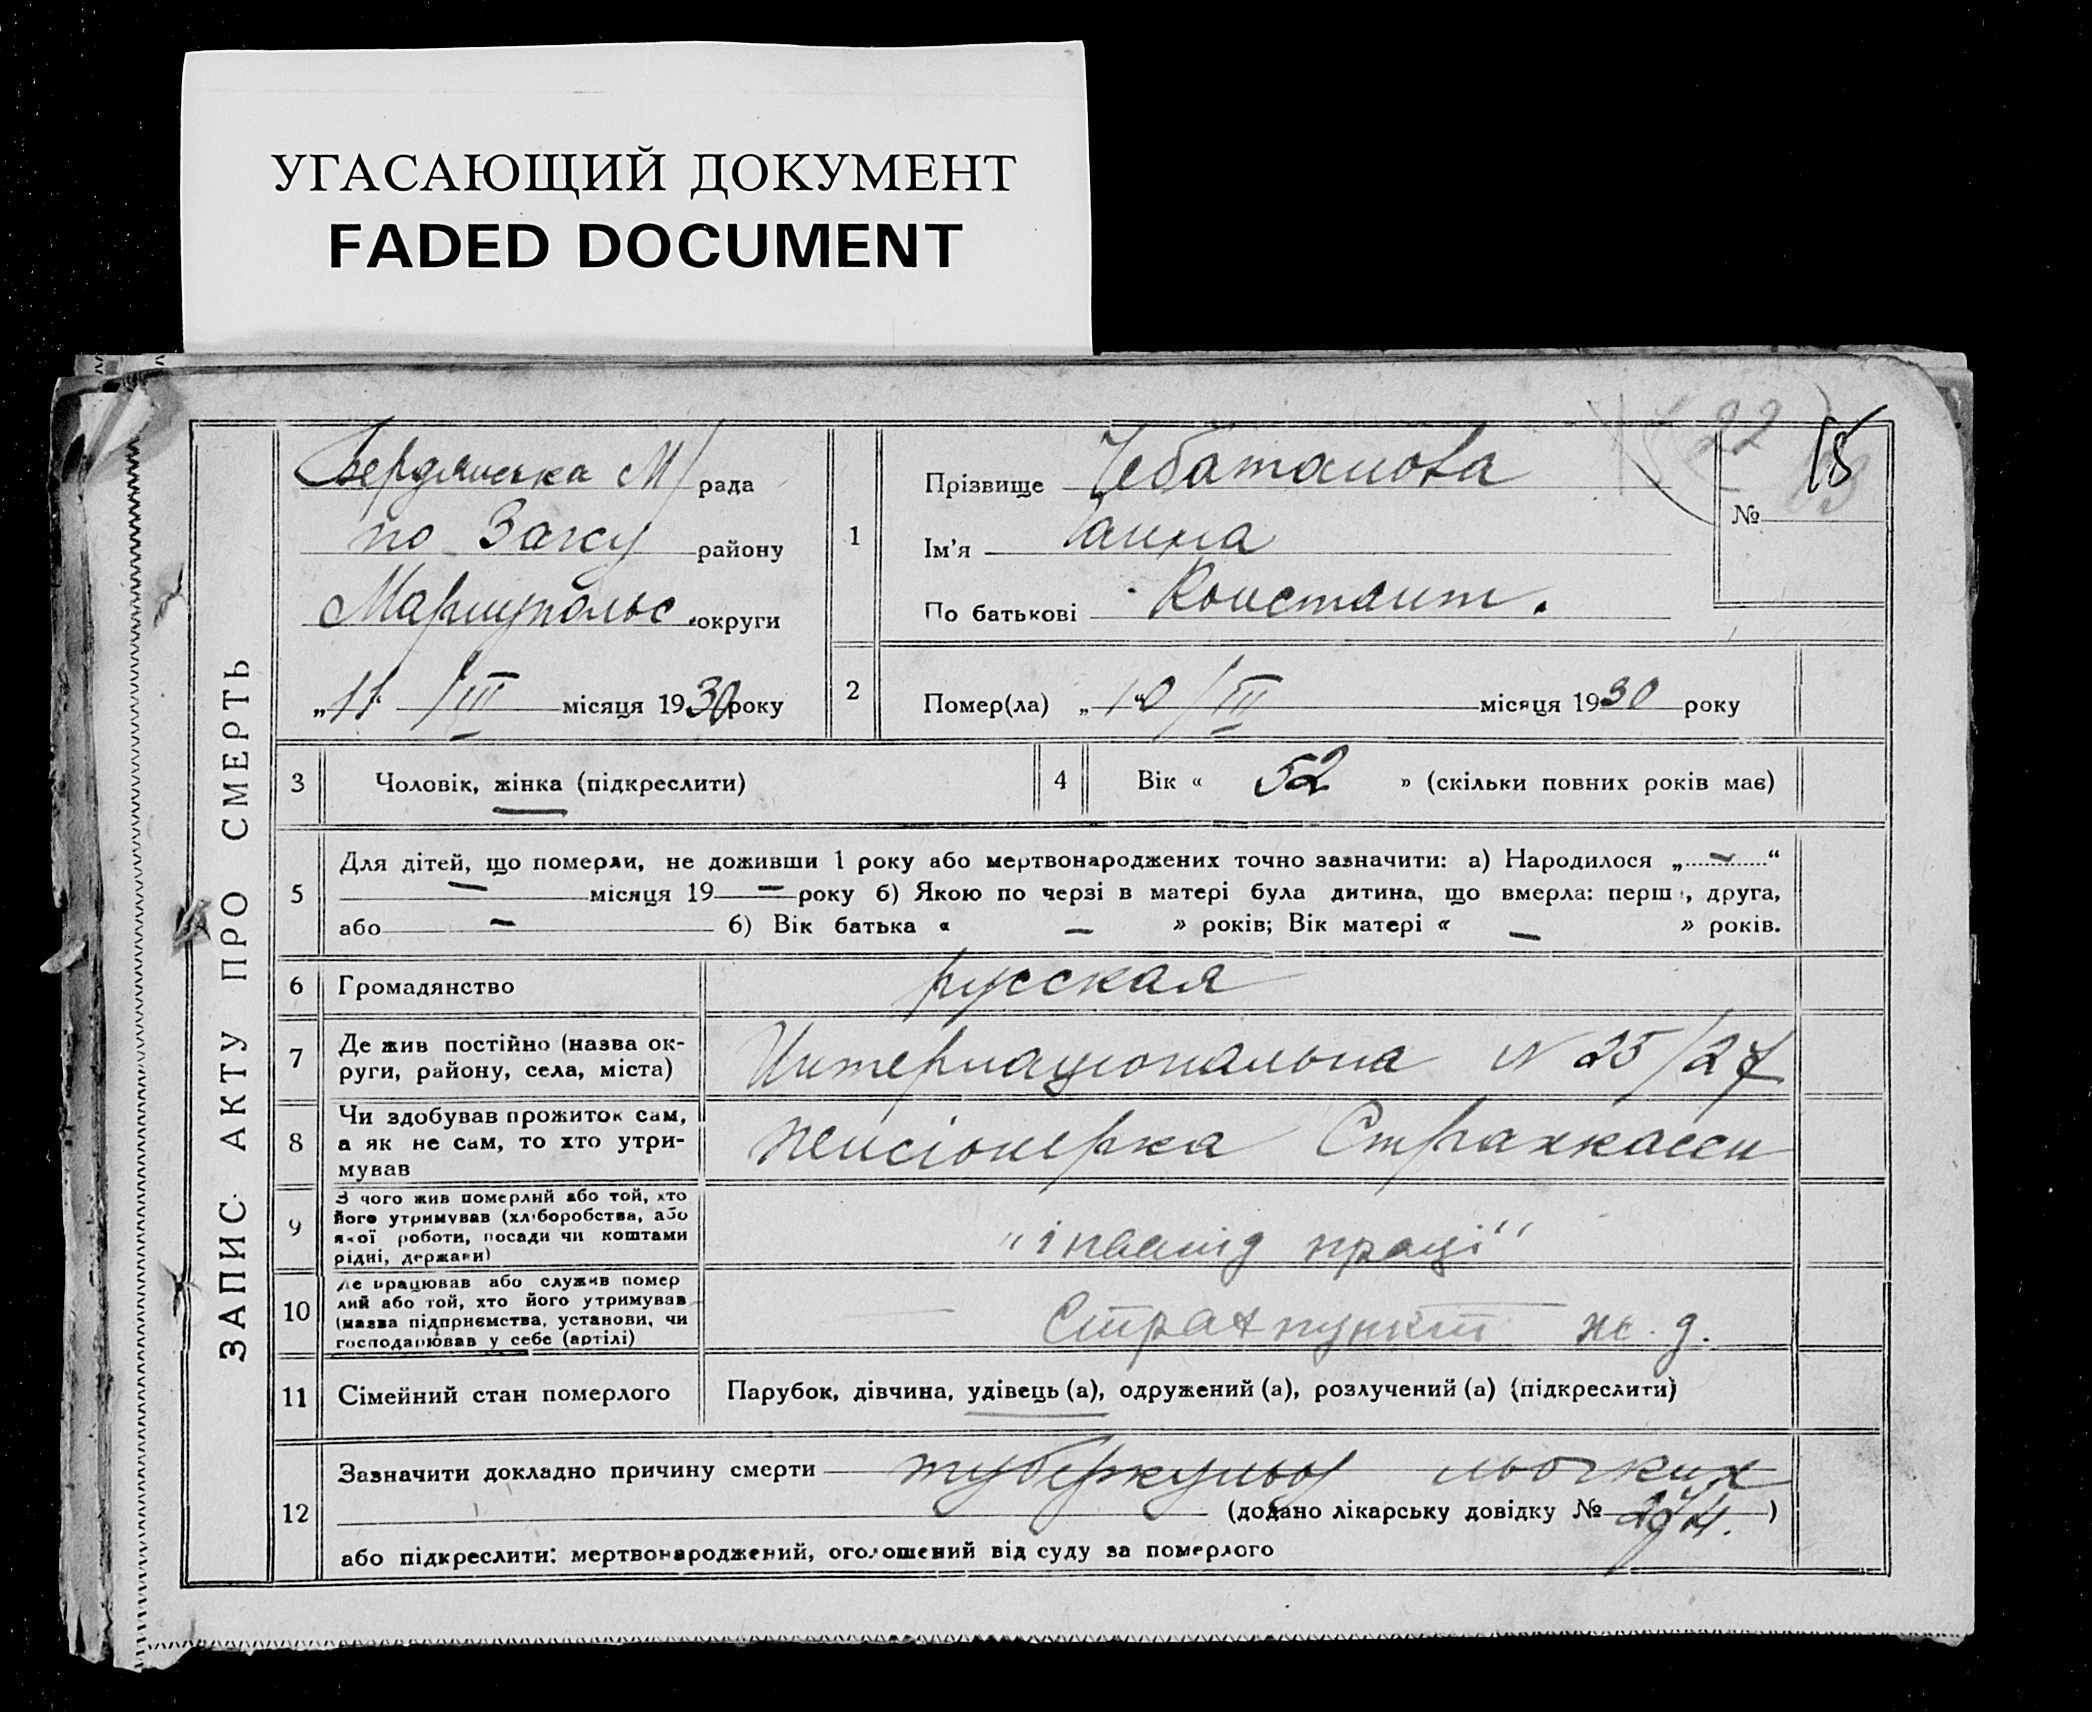 УГАСАЮЩИЙ ДОКУМЕНТ
FADED DOCUMENT
ЗАПИС АКТУ ПРО СМЕРТЬ
Бердянська М/рада
по Загсу району
Маріупольс. округи
„11 /III місяця 1930 року
22
15
№
1
Прізвище Чебатанова
Ім'я Ганна
По батькові Констант.
2
Помер(ла) „10 /III місяця 1930 року
3 Чоловік, жінка (підкреслити)
4 Вік « 52 » (скільки повних років має)
5
Для дітей, що померли, не доживши 1 року або мертвонароджених точно зазначити: а) Народилося „ — “
— місяця 19 — року б) Якою по черзі в матері була дитина, що вмерла: перша, друга,
або — б) Вік батька « — » років; Вік матері « — » років.
6 Громадянство русская
7
Де жив постійно (назва ок-
руги, району, села, міста)
Интернаціональна N 25/27
8
Чи здобував прожиток сам,
а як не сам, то хто утри-
мував
пенсіонерка Страхкасси
9
З чого жив померлий або той, хто
його утримував (хліборобства, або
якої роботи, посади чи коштами
рідні, держави)
"інвалід праці"
10
Де працював або служив помер
лий або той, хто його утримував
(назва підприємства, установи, чи
господарював у себе (артілі)
Страхпункт ж. д.
11 Сімейний стан померлого Парубок, дівчина, удівець (а), одружений (а), розлучений (а) (підкреслити)
12
Зазначити докладно причину смерти туберкульоз льогких
(додано лікарську довідку № 274.)
або підкреслити: мертвонароджений, оголошений від суду за померлого